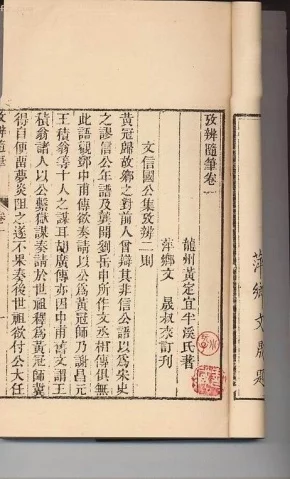 萍鄉文晟題
攷辨隨筆卷一
龍州黃定宜半溪氏著
萍鄉文 晟叔來訂刊
文信國公集攷辨二則
黃冠歸故鄉之對前人曾辯其非信公語以爲宋史
之謬信公年譜及龔開劉岳申所作文丞相傳俱無
此語觀鄧中甫傳欲奏請以公爲黃冠師乃謝昌元
王積翁等十人之謀耳胡廣傳亦因中甫舊文謂王
積翁諸人以公繫獄謀奏請於世祖釋爲黃冠師冀
得自便留夢炎阻之遂不果奏後世祖欲付公大任
攷辨隨筆 卷一